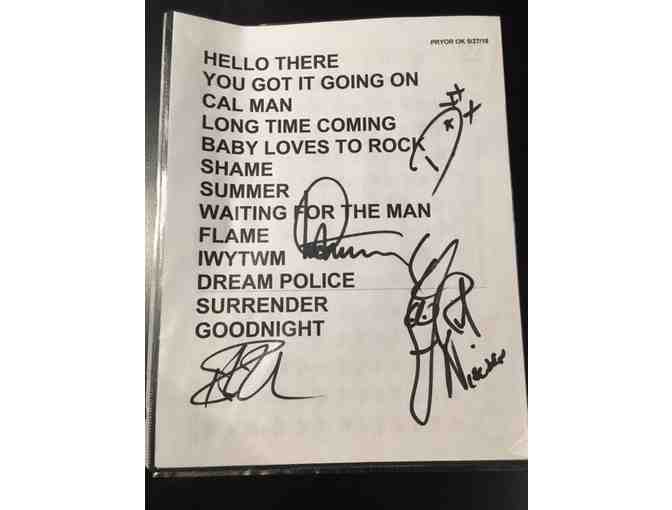 PRYOR OK 5/27/18
HELLO THERE
YOU GOT IT GOING ON
CAL MAN
LONG TIME COMING
BABY LOVES TO ROCK
SHAME
SUMMER
WAITING FOR THE MAN
FLAME
IWYTWM
DREAM POLICE
SURRENDER
GOODNIGHT